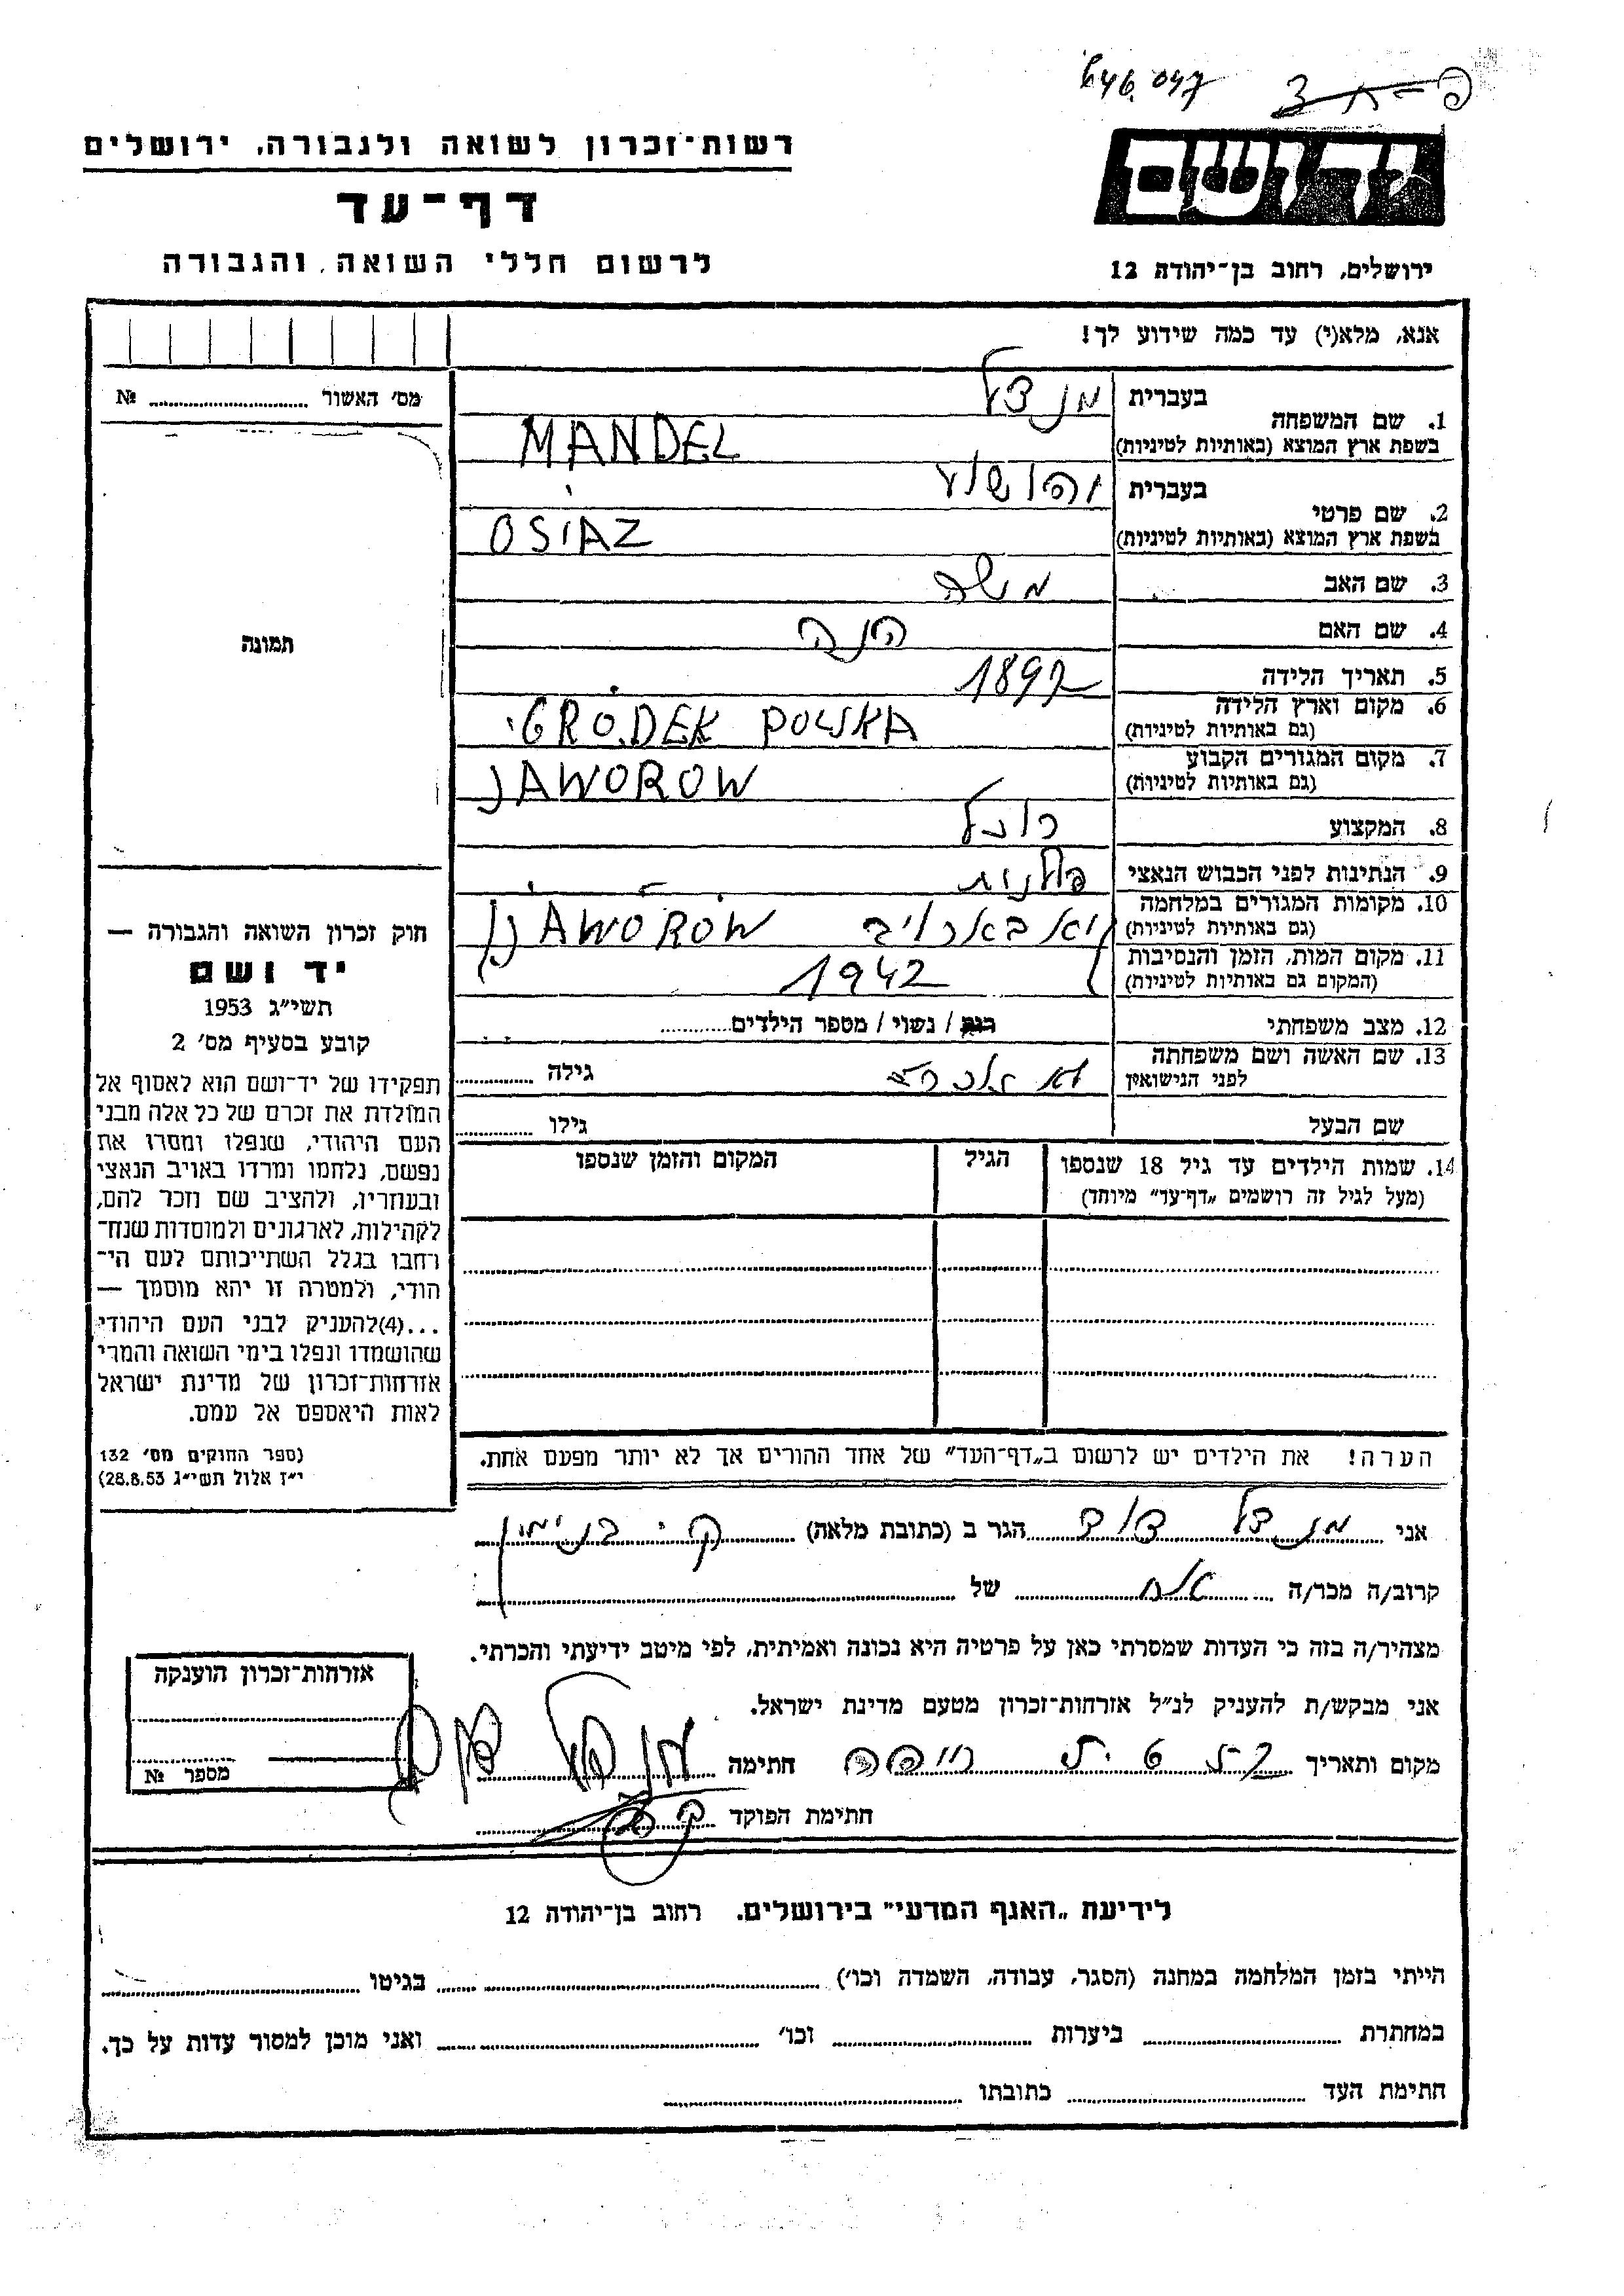 646.047
רשות־זכרון לשואה ולגבורה, ירושלים
דף־עד
לרשום חללי השואה והגבורה
ידושם
ירושלים, רחוב בן־יהודה 12
אנא, מלא(י) עד כמה שידוע לך!
מס׳ האשור № 
תמונה
1. שם המשפחה
בעברית מנדל
בשפת ארץ המוצא (באותיות לטיניות) MANDEL
2. שם פרטי
בעברית יהושע
בשפת ארץ המוצא (באותיות לטיניות) OSIAZ
3. שם האב משה
4. שם האם חנה
5. תאריך הלידה 1897
6. מקום וארץ הלידה
(גם באותיות לטיניות) GRODEK POLSKA
7. מקום המגורים הקבוע
(גם באותיות לטיניות) JAWOROW
8. המקצוע רוכל
9. הנתינות לפני הכבוש הנאצי פולנית
10. מקומות המגורים במלחמה
(גם באותיות לטיניות) JAWOROW
11. מקום המות, הזמן והנסיבות
(המקום גם באותיות לטיניות) 1942
12. מצב משפחתי רווק / נשוי / מספר הילדים
13. שם האשה ושם משפחתה
לפני הנישואין גילה
שם הבעל גילו
14. שמות הילדים עד גיל 18 שנספו הגיל המקום והזמן שנספו
(מעל לגיל זה רושמים „דף־עד״ מיוחד)
הערה! את הילדים יש לרשום ב„דף־העד״ של אחד ההורים אך לא יותר מפעם אחת.
חוק זכרון השואה והגבורה —
יד ושם
תשי״ג 1953
קובע בסעיף מס׳ 2
תפקידו של יד־ושם הוא לאסוף אל
המולדת את זכרם של כל אלה מבני
העם היהודי, שנפלו ומסרו את
נפשם, נלחמו ומרדו באויב הנאצי
ובעוזריו, ולהציב שם וזכר להם,
לקהילות, לארגונים ולמוסדות שנח־
רחבו בגלל השתייכותם לעם הי־
הודי, ולמטרה זו יהא מוסמך —
...(4)להעניק לבני העם היהודי
שהושמדו ונפלו בימי השואה והמרי
אזרחות־זכרון של מדינת ישראל
לאות היאספם אל עמם.
(ספר החוקים מס׳ 132
י״ז אלול תשי״ג 28.8.53)
אני מנדל דוד הגר ב (כתובת מלאה) ק. בנימין
קרוב/ה מכר/ה אח של
מצהיר/ה בזה כי העדות שמסרתי כאן על פרטיה היא נכונה ואמיתית, לפי מיטב ידיעתי והכרתי.
אני מבקש/ת להעניק לנ״ל אזרחות־זכרון מטעם מדינת ישראל.
מקום ותאריך חתימה מנדל דוד
חתימת הפוקד
אזרחות־זכרון הוענקה
מספר №
לידיעת „האגף המדעי״ בירושלים. רחוב בן־יהודה 12
הייתי בזמן המלחמה במחנה (הסגר, עבודה, השמדה וכו׳) בגיטו
במחתרת ביערות וכו׳ ואני מוכן למסור עדות על כך.
חתימת העד כתובתו